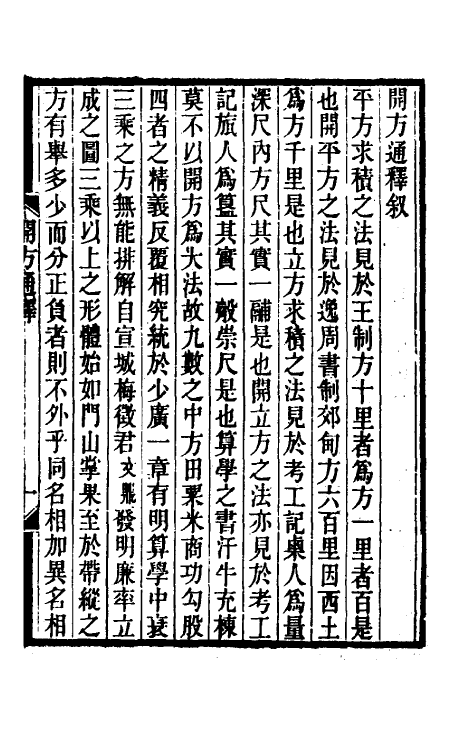 開方通釋叙
平方求積之法見於王制方十里者爲方一里者百是
也開平方之法見於逸周書制郊甸方六百里因西土
爲方千里是也立方求積之法見於考工記㮚人爲量
深尺內方尺其實一鬴是也開立方之法亦見於考工
記旊人爲簋其實一觳崇尺是也算學之書汗牛充棟
莫不以開方爲大法故九數之中方田粟米商功勾股
四者之精義反覆相究統於少廣一章有明算學中衰
三乘之方無能排解自宣城梅徵君文鼎發明廉率立
成之圖三乘以上之形體始如門山掌果至於帶縱之
方有舉多少而分正負者則不外乎同名相加異名相
開方通釋
一